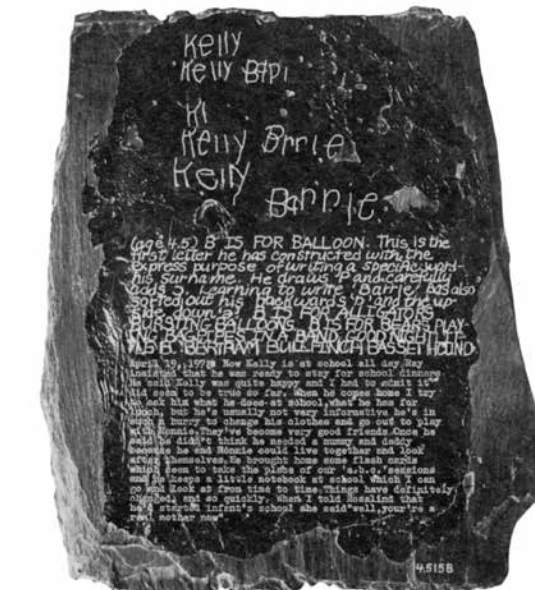 Kelly
Kelly BApi
Ki
Kelly Brrie
Kelly
Barrie.
(age 4.5) B IS FOR BALLOON. This is the
first letter he has constructed with the
express purpose of writing a specific word-
his surname. He draws 'l' and carefully
adds 3. Learning to write 'Barrie' has also
sorted out his backwards 'p' and the up-
side down 'a'. B IS FOR ALLIGATORS
BURSTING BALLOONS. B IS FOR BEARS PLAY-
ING BAGPIPES IN A BAND. GOOD NIGHT LIT-
TLE B. BERTRAM BULLFINCH BASSET HOUND
April 19, 1978 Now Kelly is at school all day Ray
insisted that he was ready to stay for school dinners
He said Kelly was quite happy and I had to admit it
did seem to be true so far. When he comes home I try
to ask him what he does at school, what he has for
lunch, but he's usually not very informative he's in
such a hurry to change his clothes and go out to play
with Ronnie. They've become very good friends. Once he
said he didn't think he needed a mummy and daddy
because he and Ronnie could live together and look
after themselves. He brought home some flash cards
which seem to take the place of our 'a.b.c.' sessions
and he keeps a little notebook at school which I can
go and look at from time to time. Things have definitely
changed, and so quickly. When I told Rosalind that
he'd started infant's school she said "well, your're a
real mother now"
4.515B